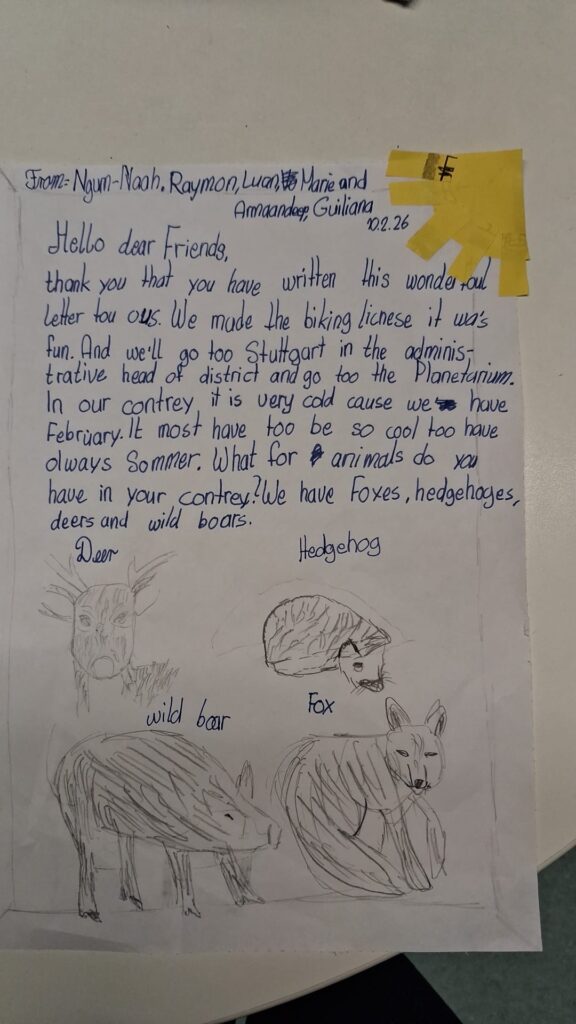 From: Ngum-Naah, Raymon, Luan, Marie and
Armaandeep, Guiliana
10.2.26
Hello dear Friends,
thank you that you have written this wonderfoul
letter tou ous. We made the biking licnese it was
fun. And we'll go too Stuttgart in the adminis-
trative head of district and go too the Planetarium.
In our contrey it is very cold cause we have
February. It most have too be so cool too have
olways Sommer. What for animals do you
have in your contrey? We have Foxes, hedgehoges,
deers and wild boars.
Deer
Hedgehog
wild boar
Fox